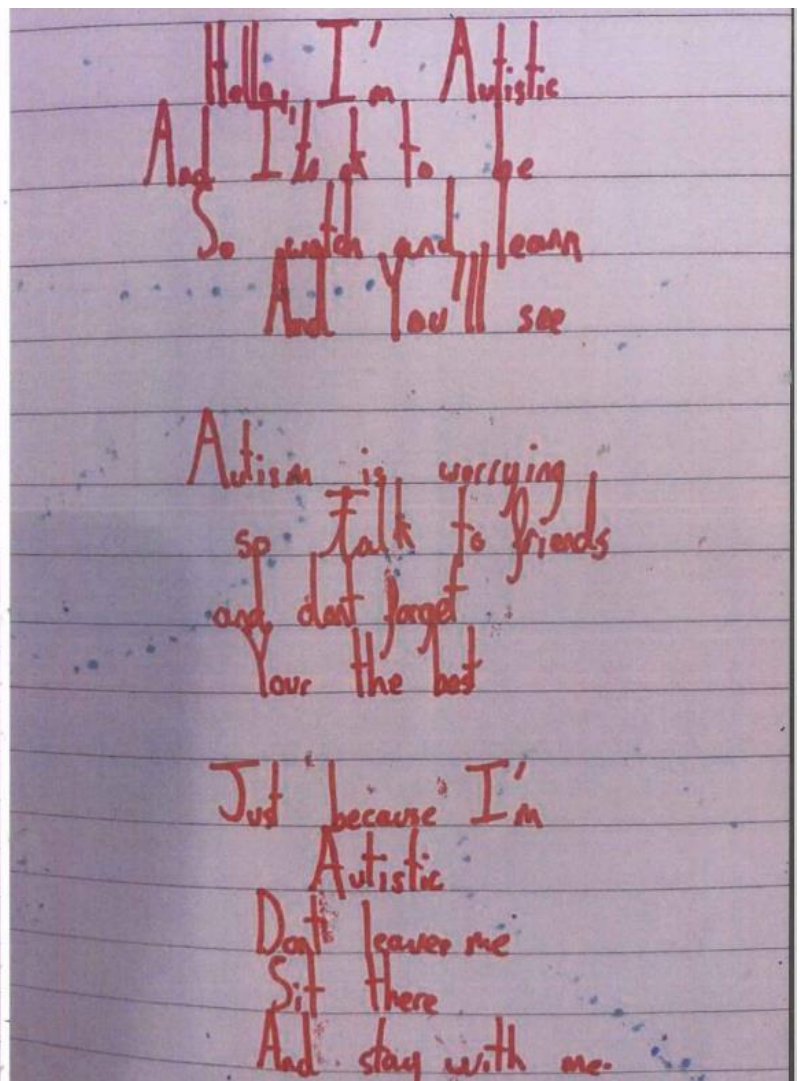 Hello, I'm Autistic
And I'ts ok to be
So watch and learn
And You'll see
Autism is worrying
so Talk to friends
and dont forget
Your the best
Just because I'm
Autistic
Dont leaver me
Sit there
And stay with me.